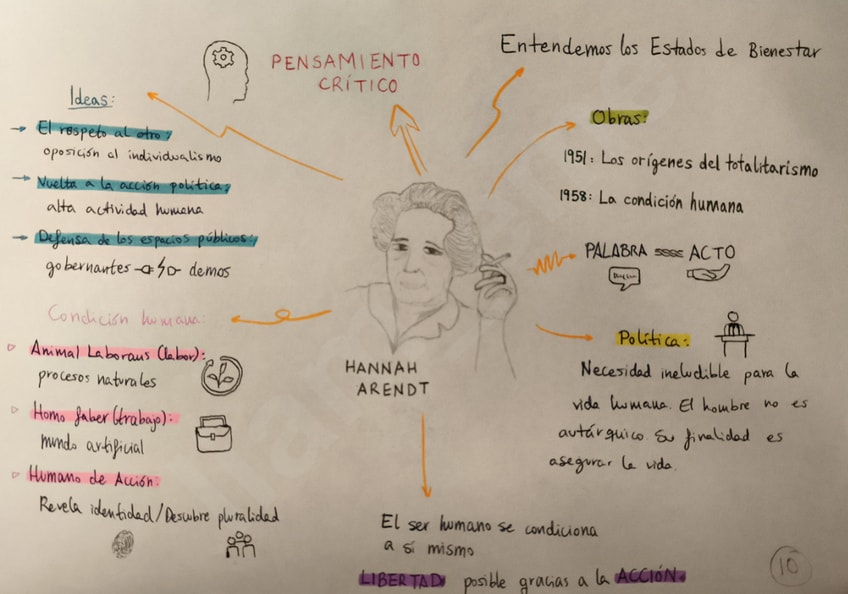 PENSAMIENTO
CRÍTICO
Entendemos los Estados de Bienestar
Ideas:
El respeto al otro;
oposición al individualismo
Vuelta a la acción política;
alta actividad humana
Defensa de los espacios públicos;
gobernantes demos
Obras:
1951: Los orígenes del totalitarismo
1958: La condición humana
PALABRA ACTO
Política:
Necesidad ineludible para la
vida humana. El hombre no es
autárquico. Su finalidad es
asegurar la vida.
Condición humana:
Animal Laborans (labor):
procesos naturales
Homo faber (trabajo):
mundo artificial
Humano de Acción:
Revela identidad/Descubre pluralidad
HANNAH
ARENDT
El ser humano se condiciona
a sí mismo
LIBERTAD posible gracias a la ACCIÓN.
10